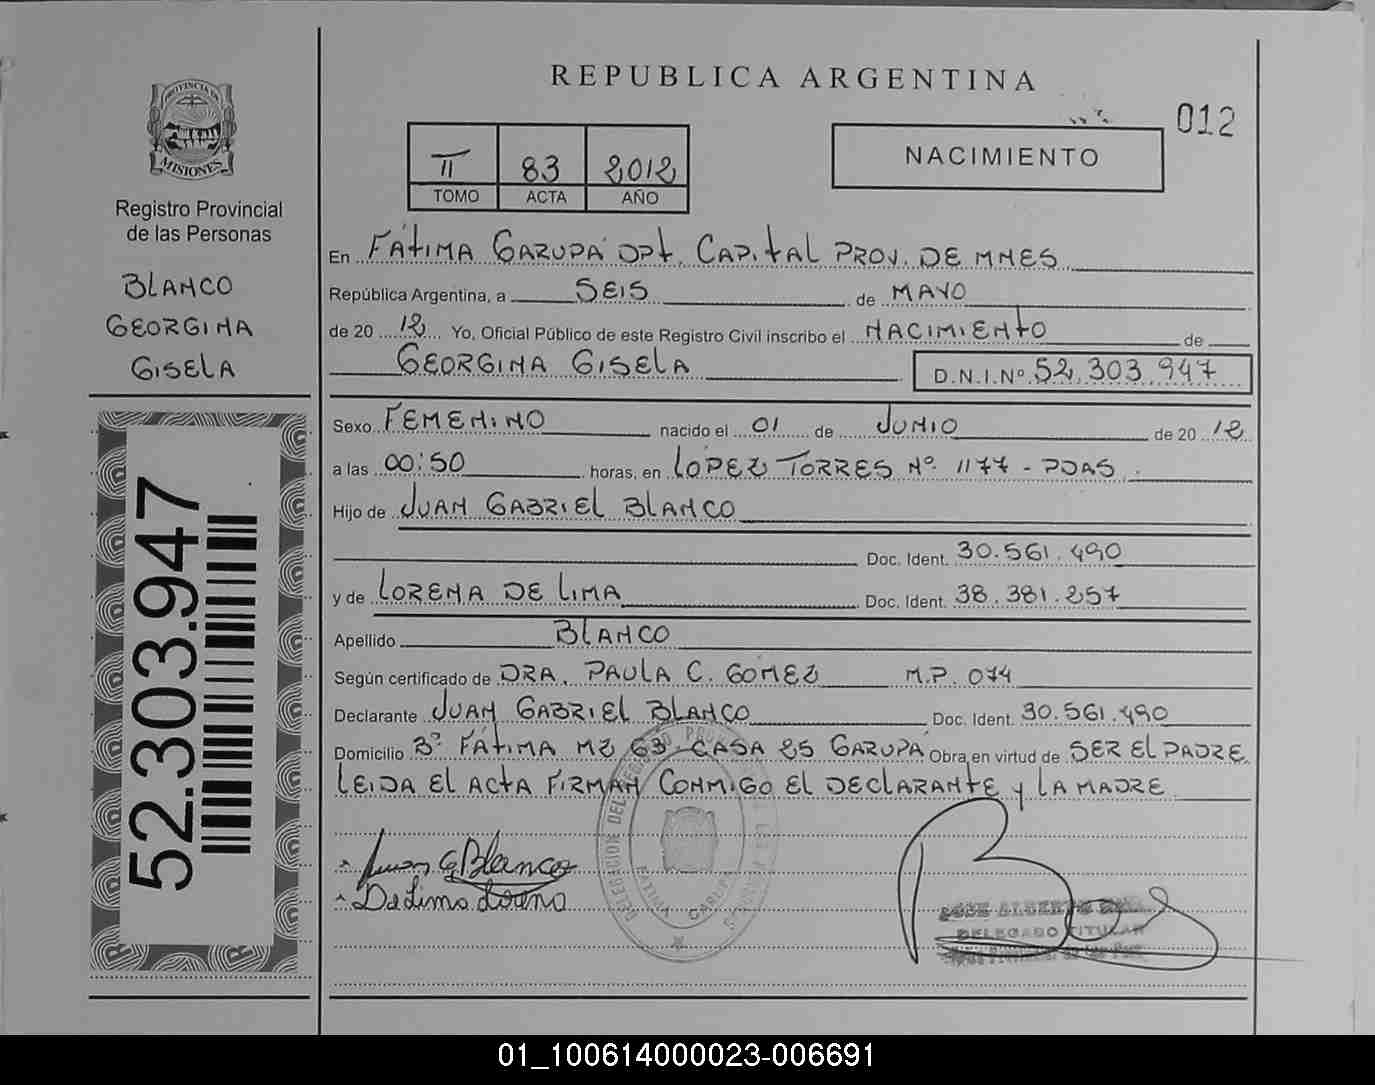 REPUBLICA ARGENTINA
012
NACIMIENTO
II 83 2012
TOMO ACTA AÑO
PROVINCIA DE
MISIONES
Registro Provincial
de las Personas
BLANCO
GEORGINA
GISELA
52.303.947
En FÁTIMA GARUPA DPt. CAPITAL PROV. DE MNES
República Argentina, a SEIS de MAYO
de 20 12 Yo, Oficial Público de este Registro Civil inscribo el NACIMIENTO de
GEORGINA GISELA D.N.I.Nº 52.303.947
Sexo FEMENINO nacido el 01 de JUNIO de 20 12
a las 00:50 horas, en LOPEZ TORRES Nº 1177 - PDAS.
Hijo de JUAN GABRIEL BLANCO
Doc. Ident. 30.561.490
y de LORENA DE LIMA Doc. Ident. 38.381.257
Apellido BLANCO
Según certificado de DRA. PAULA C. GOMEZ M.P. 074
Declarante JUAN GABRIEL BLANCO Doc. Ident. 30.561.490
Domicilio Bº FÁTIMA MZ 63 CASA 25 GARUPA Obra en virtud de SER EL PADRE
LEIDA EL ACTA FIRMAN CONMIGO EL DECLARANTE y LA MADRE
Juan G Blanco
De Lima Lorena
FATIMA GARUPA
JOSE ALBERTO
DELEGADO TITULAR
01_100614000023-006691